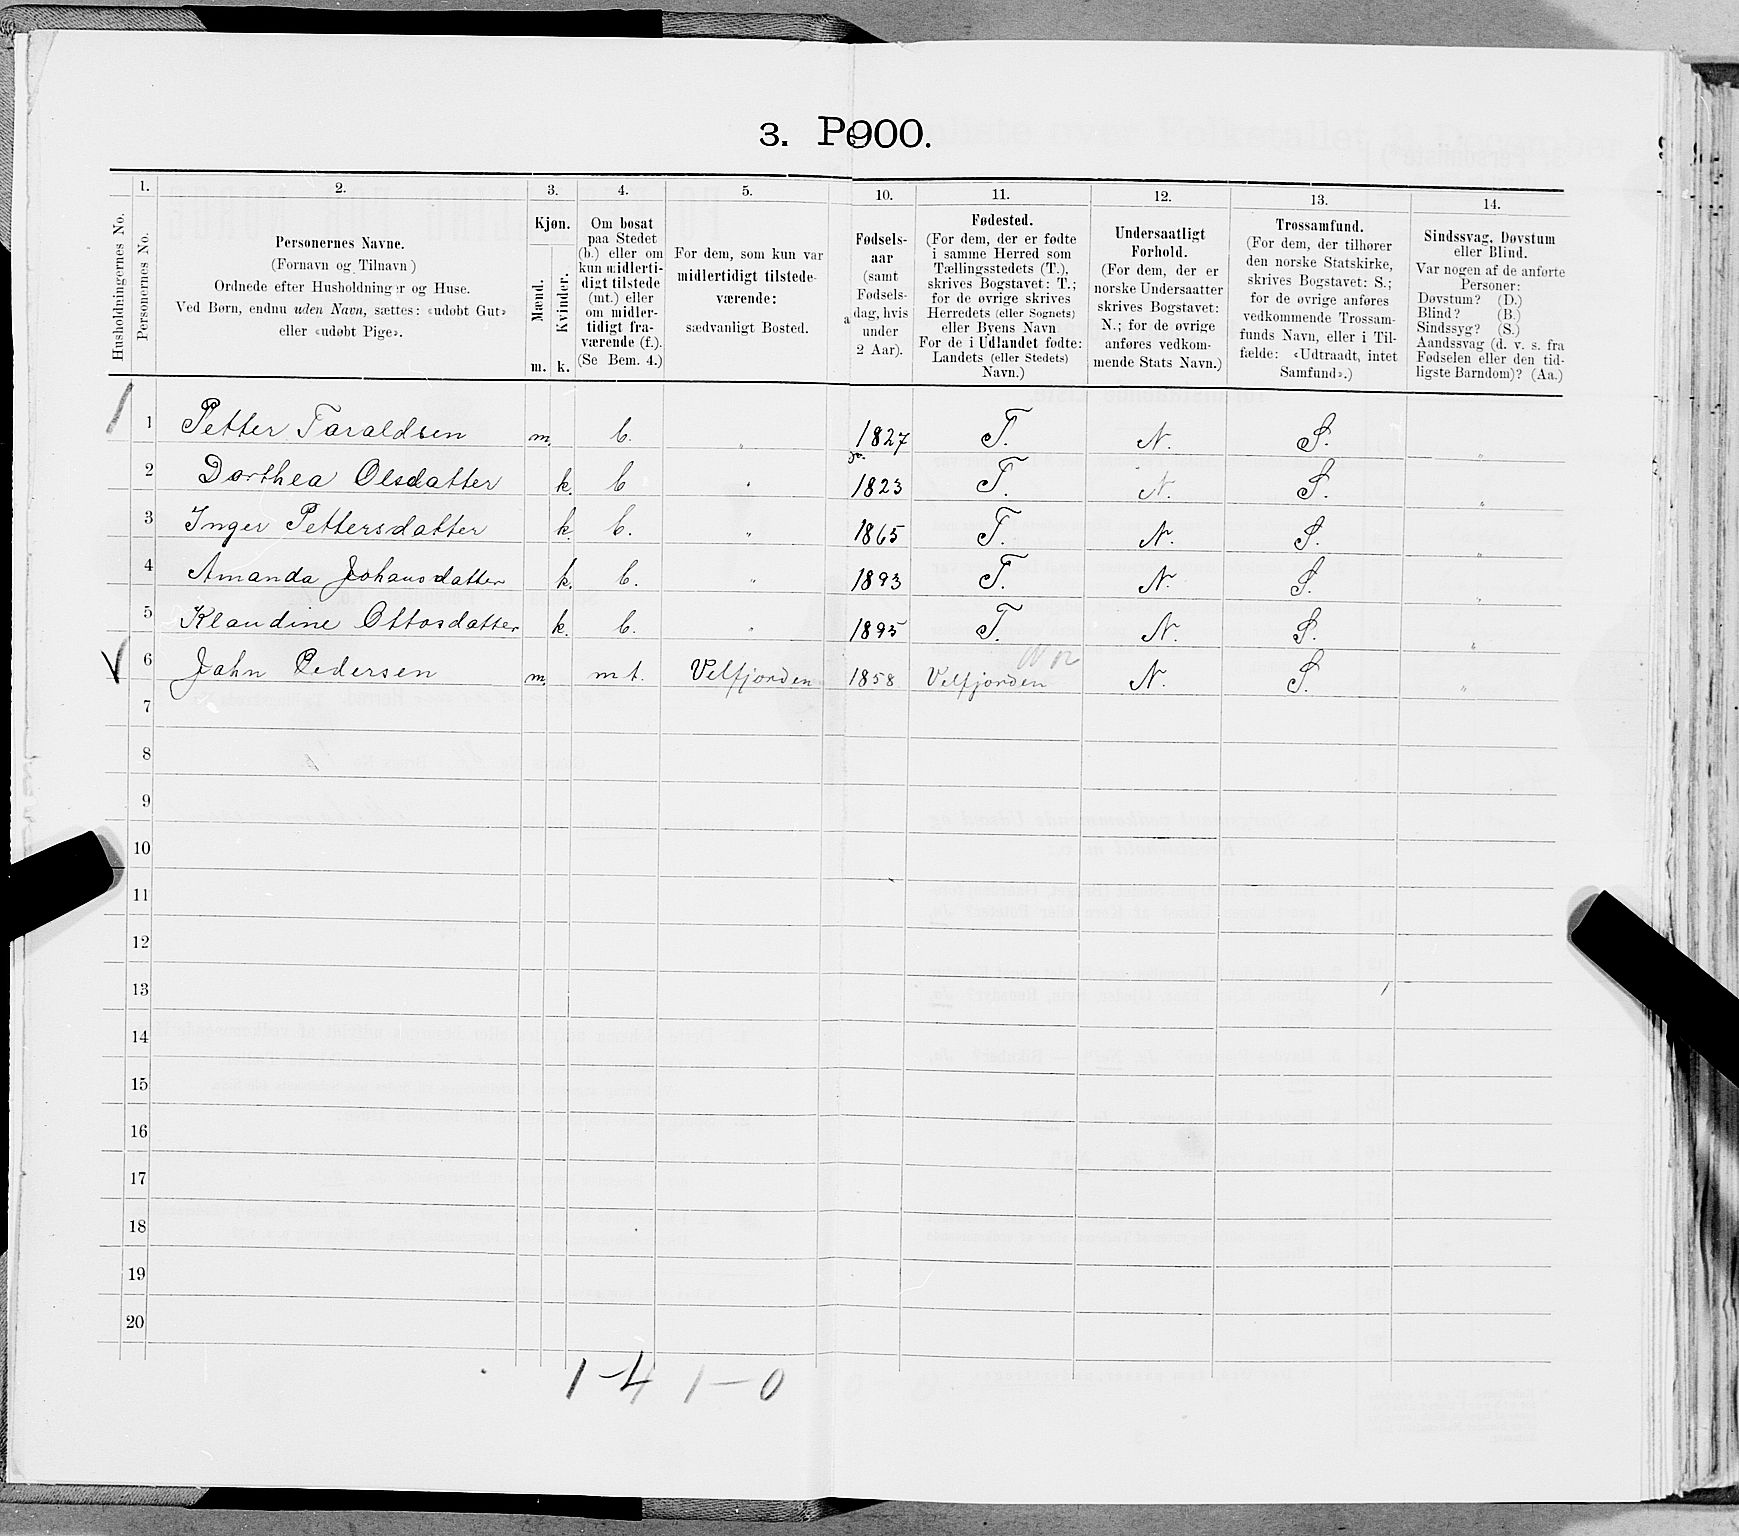 3. Pe900.
Husholdningernes No.
1.
Personernes No.
2.
Personernes Navne.
(Fornavn og Tilnavn)
Ordnede efter Husholdninger og Huse.
Ved Børn, endnu uden Navn, sættes: «udøbt Gut»
eller «udøbt Pige».
3.
Kjøn.
Mænd.
Kvinder.
m. k.
4.
Om bosat
paa Stedet
(b.) eller om
kun midlerti-
digt tilstede
(mt.) eller
om midler-
tidigt fra-
værende (f.).
(Se Bem. 4.)
5.
For dem, som kun var
midlertidigt tilstede-
værende:
sædvanligt Bosted.
a
10.
Fødsels-
aar
(samt
Fødsels-
dag, hvis
under
2 Aar).
11.
Fødested.
(For dem, der er fødte
i samme Herred som
Tællingsstedets (T.),
skrives Bogstavet: T.;
for de øvrige skrives
Herredets (eller Sognets)
eller Byens Navn
For de i Udlandet fødte:
Landets (eller Stedets)
Navn.)
12.
Undersaatligt
Forhold.
(For dem, der er
norske Undersaatter
skrives Bogstavet:
N.; for de øvrige
anføres vedkom-
mende Stats Navn.)
13.
Trossamfund.
(For dem, der tilhører
den norske Statskirke,
skrives Bogstavet: S.;
for de øvrige anføres
vedkommende Trossam-
funds Navn, eller i Til-
fælde: «Udtraadt, intet
Samfund».)
14.
Sindssvag, Døvstum
eller Blind.
Var nogen af de anførte
Personer:
Døvstum? (D.)
Blind? (B.)
Sindssyg? (S.)
Aandssvag (d. v. s. fra
Fødselen eller den tid-
ligste Barndom)? (Aa.)
1 Petter Taraldsen m. b. " 1827 T. N. S. "
2 Dorthea Olsdatter k. b " 1823 T. N. S. "
3 Inger Pettersdatter k b. " 1865 T. N. S. "
4 Amanda Johansdatter k. b. " 1893 T. N. S. "
5 Klaudine Ottosdatter k. b. " 1895 T. N. S. "
6 Jahn Pedersen m. mt. Velfjorden 1858 Velfjorden N. S. "
7
8
9
10
11
12
13
14
15
16
17
18
19
20
1-4 1-0